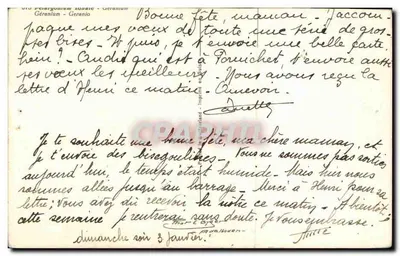 Pelargonium zonale - Géranium
Géranium - Geranio
Bonne fête, maman. J'accom-
pagne mes vœux de toute une série de gros-
ses bises. Et puis, je t'envoie une belle carte
hein! Claudie qui est à Pornichet t'envoie aussi
ses vœux les meilleurs. Nous avons reçu la
lettre d'Henri ce matin. Au revoir.
Je te souhaite une bonne fête, ma chère maman, et
je t'envoie des Vous ne sommes pas sorties
aujourd'hui, le temps était humide. Mais hier nous
sommes allées jusqu'au barrage. Merci à Henri pour sa
lettre; Vous avez dû recevoir la nôtre ce matin. A bientôt!
cette semaine je rentrerai sans doute. Je vous embrasse.
dimanche soir 3 janvier.